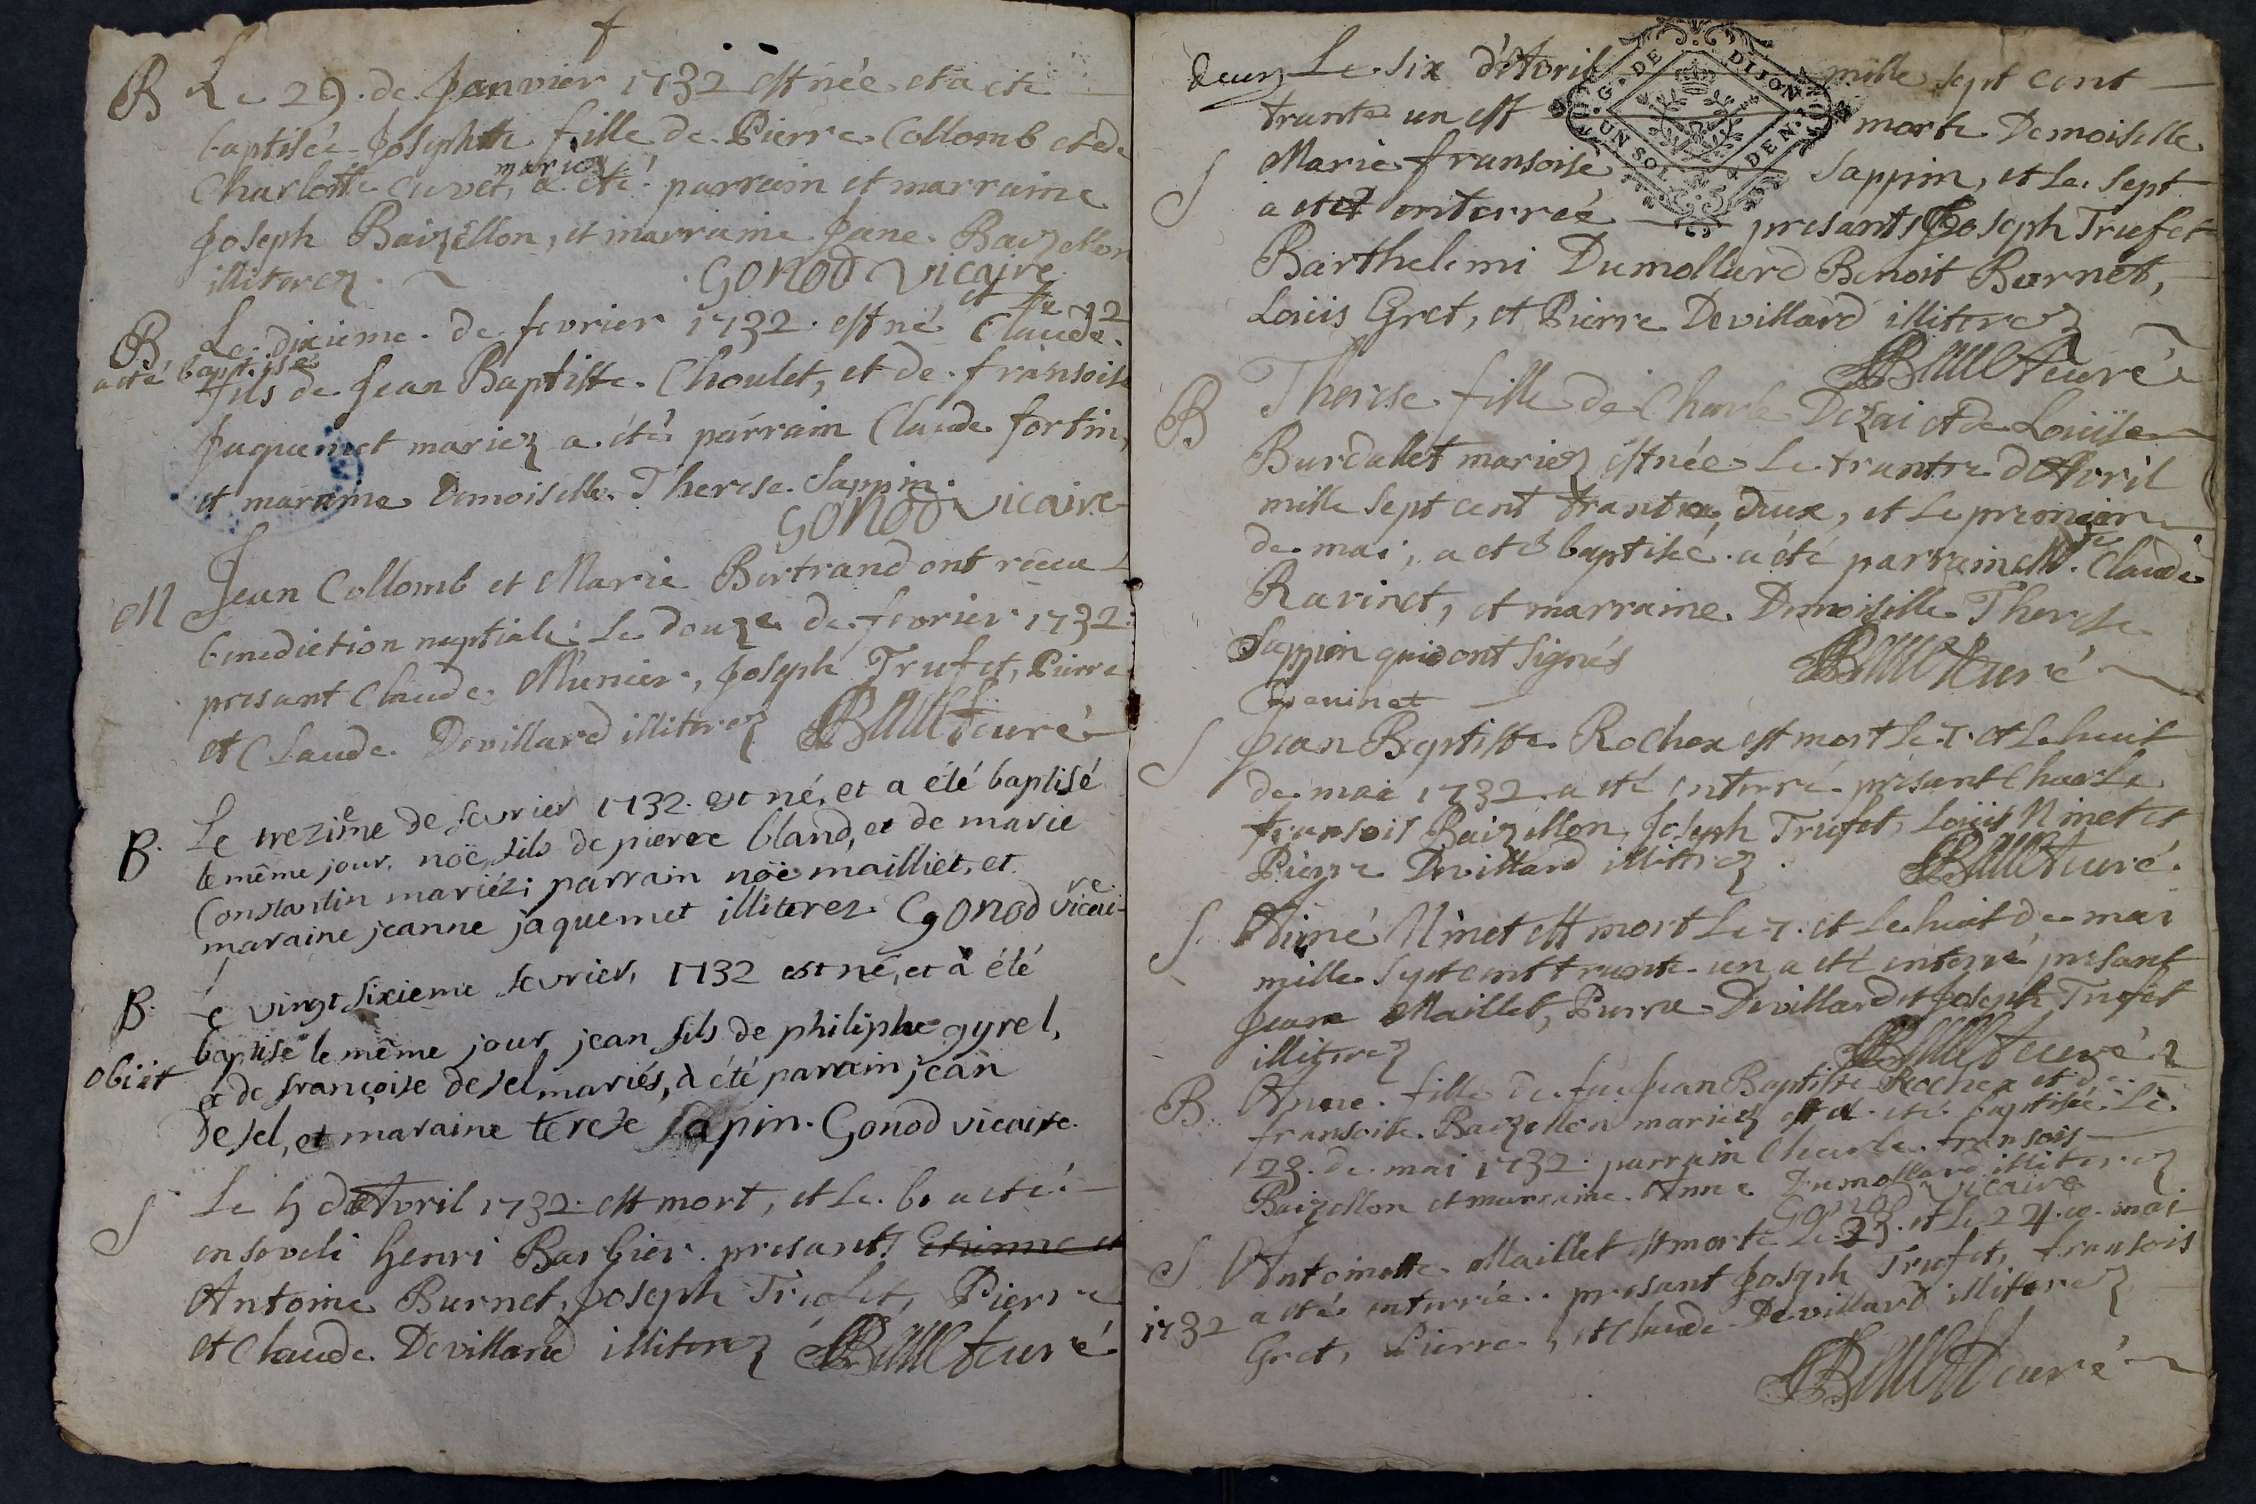 B Le 29. de Janvier 1732 est née et a eté
baptisée Josephte fille de Pierre Collomb et de
Charlotte Cuvet, mariez a été parrain et marraine
Joseph Baizellon, et marraine Jane Baizellon
illiterez. Gonod vicaire
et le 12
B Le dixieme de fevrier 1732. est né Claude
a eté baptisé
fils de Jean Baptiste Choulet, et de fransoise
Jaquemet mariez a été parrain Claude fortin,
et maraine Demoiselle Therese Sappin.
Gonod vicaire
M Jean Collomb et Marie Bertrand ont recu
benediction nuptiale le douze de fevrier 1732.
presant Claude Munier, Joseph Trufet, Pierre
et Claude Devillard illiterez curé
B. Le trezième de fevrier 1732. est né, et a été baptisé
le même jour, noë, fils de pierre bland, et de marie
Constantin mariéz; parrain noë mailliet, et
maraine jeanne jaquemet illiterez Gonod vicaire
B. Le vingt sixieme fevrier, 1732 est né, et à été
baptisé le même jour jean fils de philiphe gyrel,
obiit et de françoise desel mariés, à été parrain jean
desel, et maraine terese sapin. Gonod vicaire.
S Le 5 d'Avril 1732 est mort, et le 6. a eté
enseveli henri Barbier presant Etienne et
Antoine Burnet, Joseph Trufet, Pierre
et Claude Devillard illiterez curé
deux Le six d'Avril mille sept cent
trante un est morte Demoiselle
S Marie fransoise Sappin, et le sept
a eté enterreé presants Joseph Trufet
Barthelemi Dumollard Benoit Burnet,
Loüis Gret, et Pierre Devillard illiterez
curé
G. DE DIJON
UN SOL DEN.
B Therese fille de Charle Dezai et de Loüise
Burdallet mariez est née le trante d'Avril
mille sept cent trante deux, et le premier
de mai, a eté baptisé. a été parrain Mre Claude
Ravinet, et marraine Demoiselle Therese
Sappin qui ont signés curé
Ravinet
S Jean Baptiste Rochex est mort le 7. et le huit
de mai 1732 a eté enterré presant Charle
fransois Baizellon, Joseph Trufet, Loüis Ninet et
Pierre Devillard illiterez. curé.
S. Aimé Ninet est mort le 7. et le huit de mai
mille sept cent trante un a eté enterré presant
Jean Maillet, Pierre Devillard et Joseph Trufet
illiterez curé
B. Anne fille de feu Jean Baptiste Rochex et de
fransoise Baizellon mariez a eté baptisée le
23. de mai 1732. parrain Charle fransois
Baizellon et marraine Anne Dumollard illiterez
Gonod vicaire
S. Antoinette Maillet est morte le 23. et le 24. mai
1732 a eté enterrée presant Joseph Trufet, fransois
Gret, Pierre, et Claude Devillard illiterez
curé